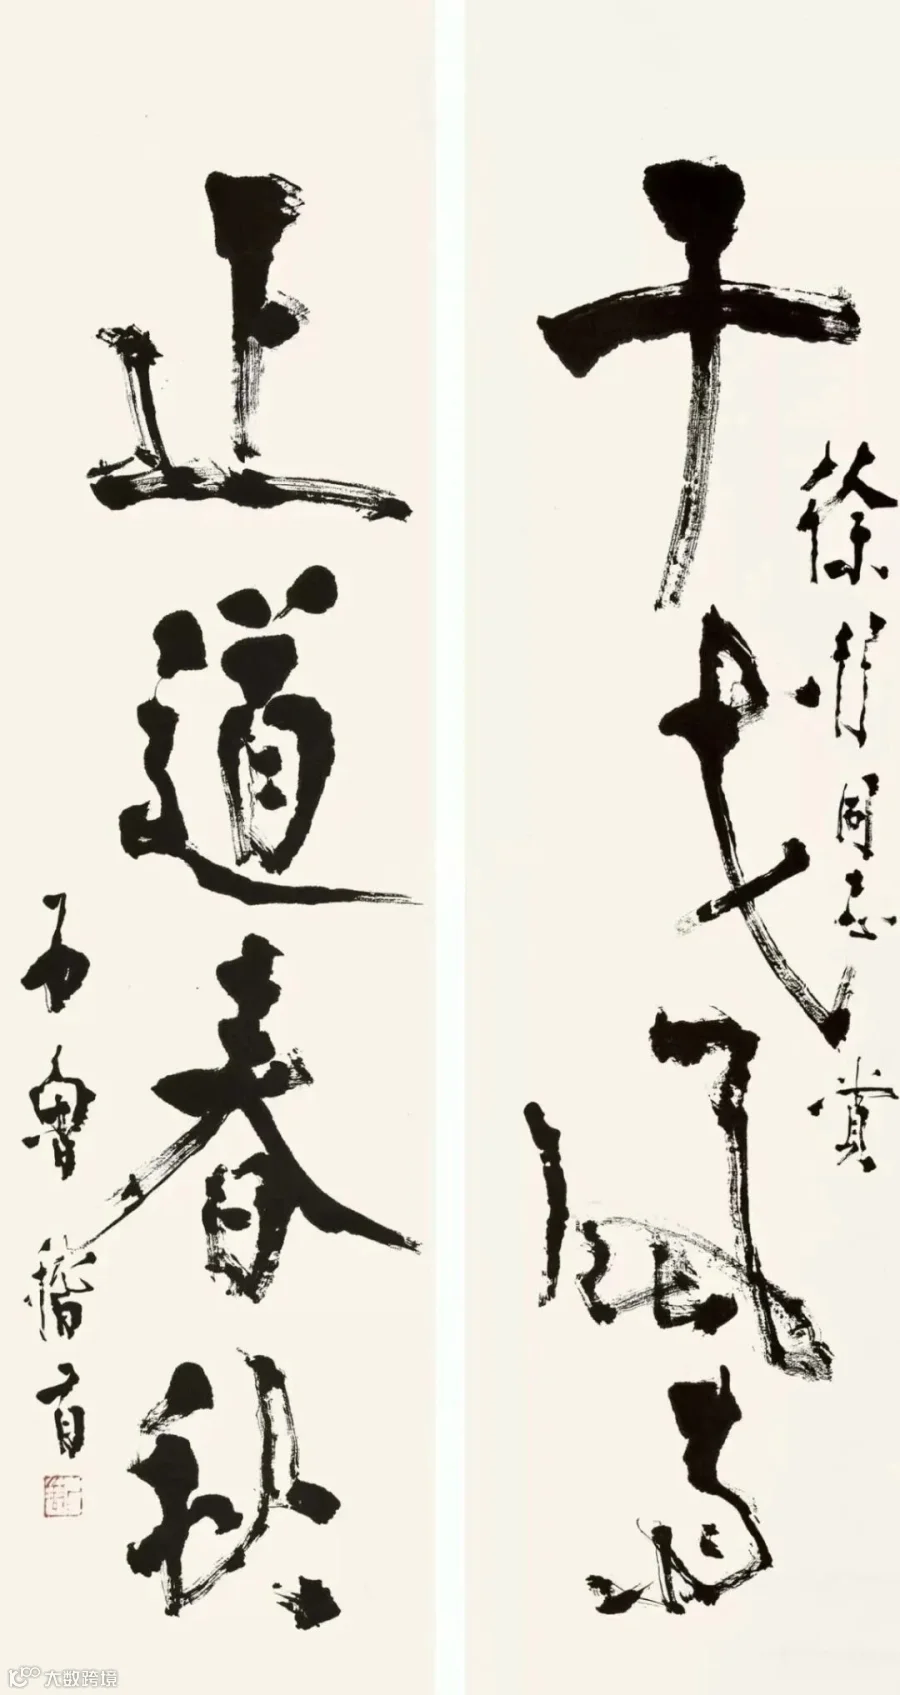 千代风
徐 同志 赏
止道春秋
石鲁稽首
大数跨境